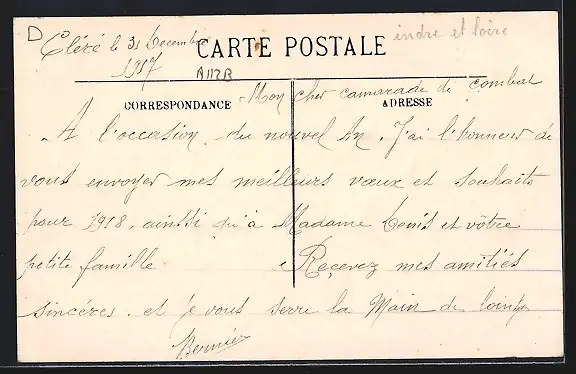 D
Cléré le 31 Decembre
1917
CARTE POSTALE
indre et loire
A112B
Mon cher camarade de combat
CORRESPONDANCE
ADRESSE
A l'occasion du nouvel An. J'ai l'honneur de
vous envoyer mes meilleurs vœux et souhaits
pour 1918, ainssi qu'à Madame Denis et vôtre
petite famille. Recevez mes amitiés
sincéres. et je vous serre la Main de loing
Bernier